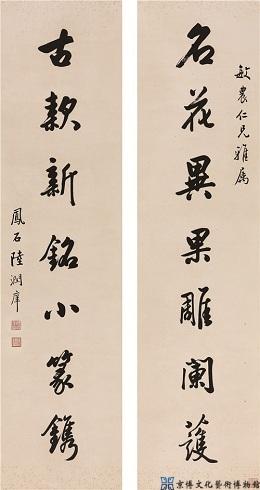 敏農仁兄雅属
名花異果雕闌護
古款新銘小篆鐫
鳳石陸潤庠
京博文化藝術博物館